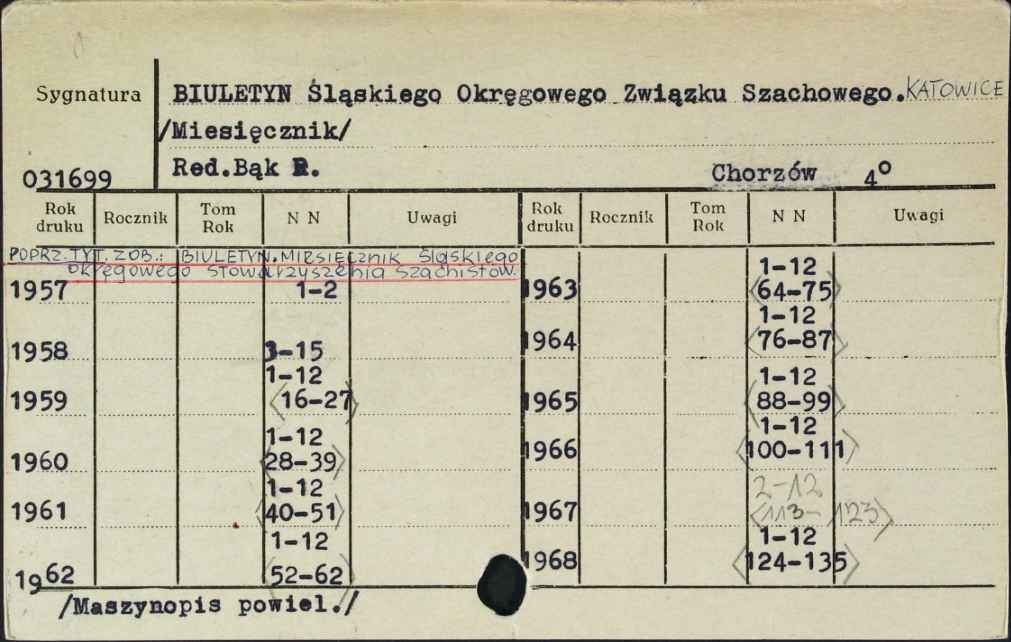 Sygnatura
BIULETYN Śląskiego Okręgowego Związku Szachowego. KATOWICE
/Miesięcznik/
Red.Bąk R. Chorzów 4°
031699
Rok druku Rocznik Tom Rok N N Uwagi Rok druku Rocznik Tom Rok N N Uwagi
POPRZ. TYT. ZOB.: BIULETYN. MIESIĘCZNIK Śląskiego
Okręgowego Stowarzyszenia Szachistów.
1957 1-2
1958 3-15
1959 1-12 <16-27>
1960 1-12 <28-39>
1961 1-12 <40-51>
1962 1-12 <52-62>
1963 1-12 <64-75>
1964 1-12 <76-87>
1965 1-12 <88-99>
1966 1-12 <100-111>
1967 2-12 <113-123>
1968 1-12 <124-135>
/Maszynopis powiel./